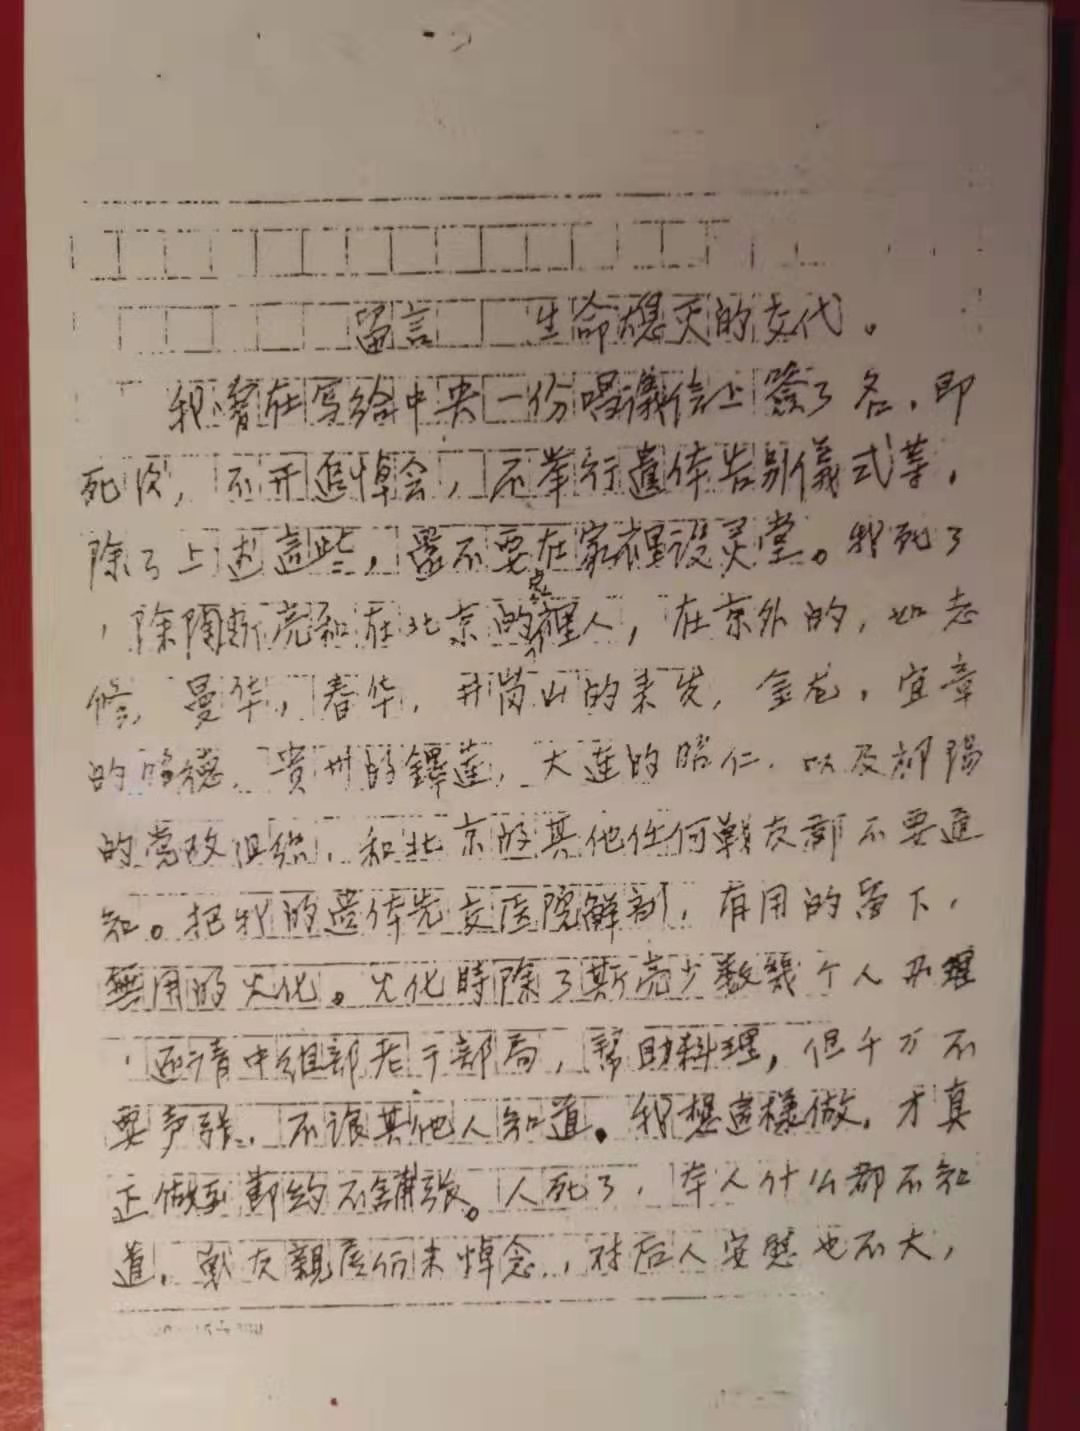 留言 生命熄灭的交代。
我曾在写给中央一份倡议信上簽了名，即
死后，不开追悼会，不举行遺体告别儀式等。
除了上述這些，還不要在家裡设灵堂。我死了
，除陶斯亮和在北京的家裡人，在京外的，如志
修，曼华，春华，井岗山的来发，金龙，宜章
的昭德，贵州的鐸蓮，大连的昭仁，以及祁陽
的党政组织，和北京的其他任何戰友都不要通
知。把我的遗体先交医院解剖，有用的留下，
無用的火化。火化時除了斯亮少数幾个人办理
，还请中组部老干部局，幫助料理，但千万不
要声张，不讓其他人知道。我想這樣做，才真
正做到節约不铺張。人死了，本人什么都不知
道，戰友親屬们来悼念，对后人安慰也不大，